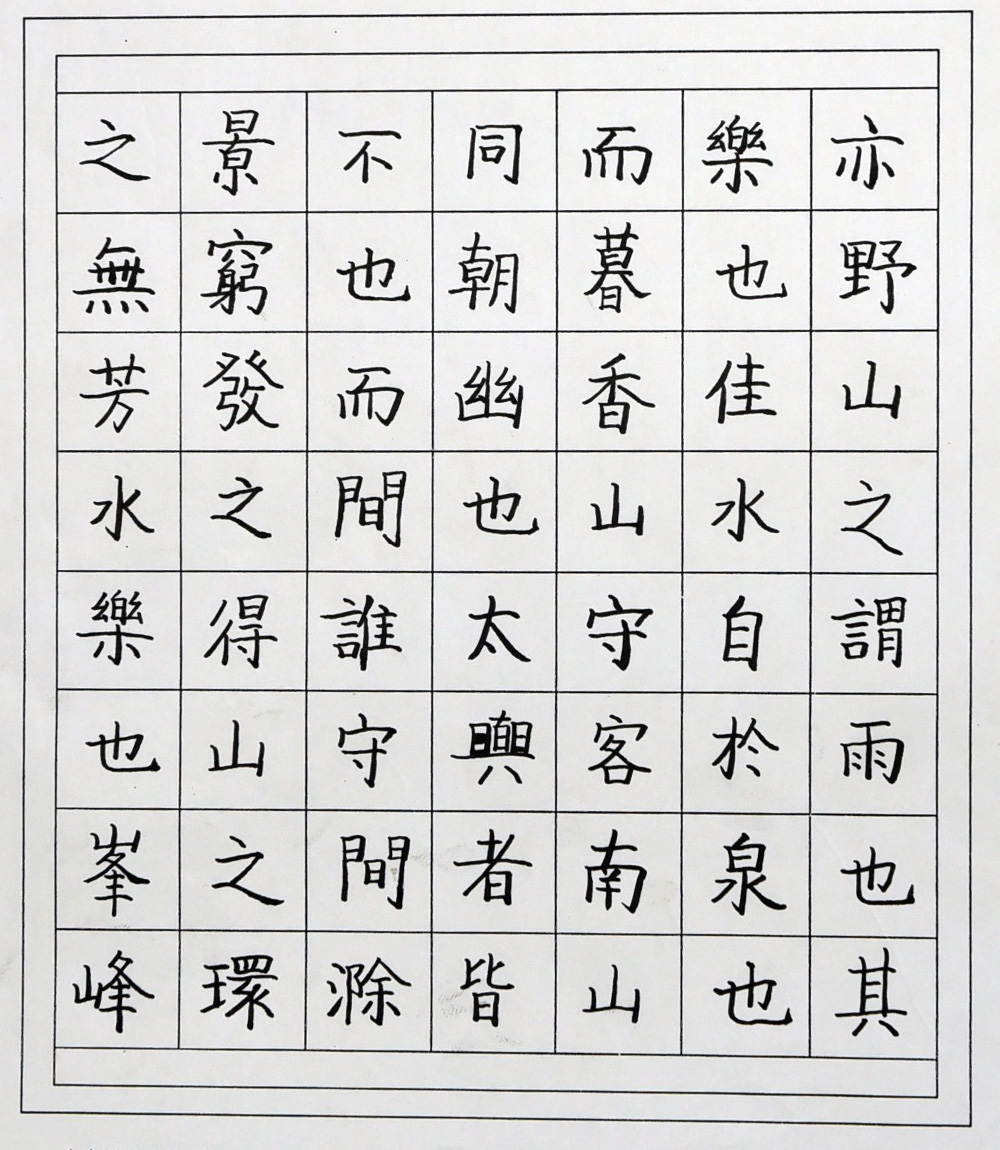 之景不同而樂亦
無窮也朝暮也野
芳發而幽香佳山
水之間也山水之
樂得誰太守自謂
也山守興客於雨
峯之間者南泉也
峰環滁皆山也其